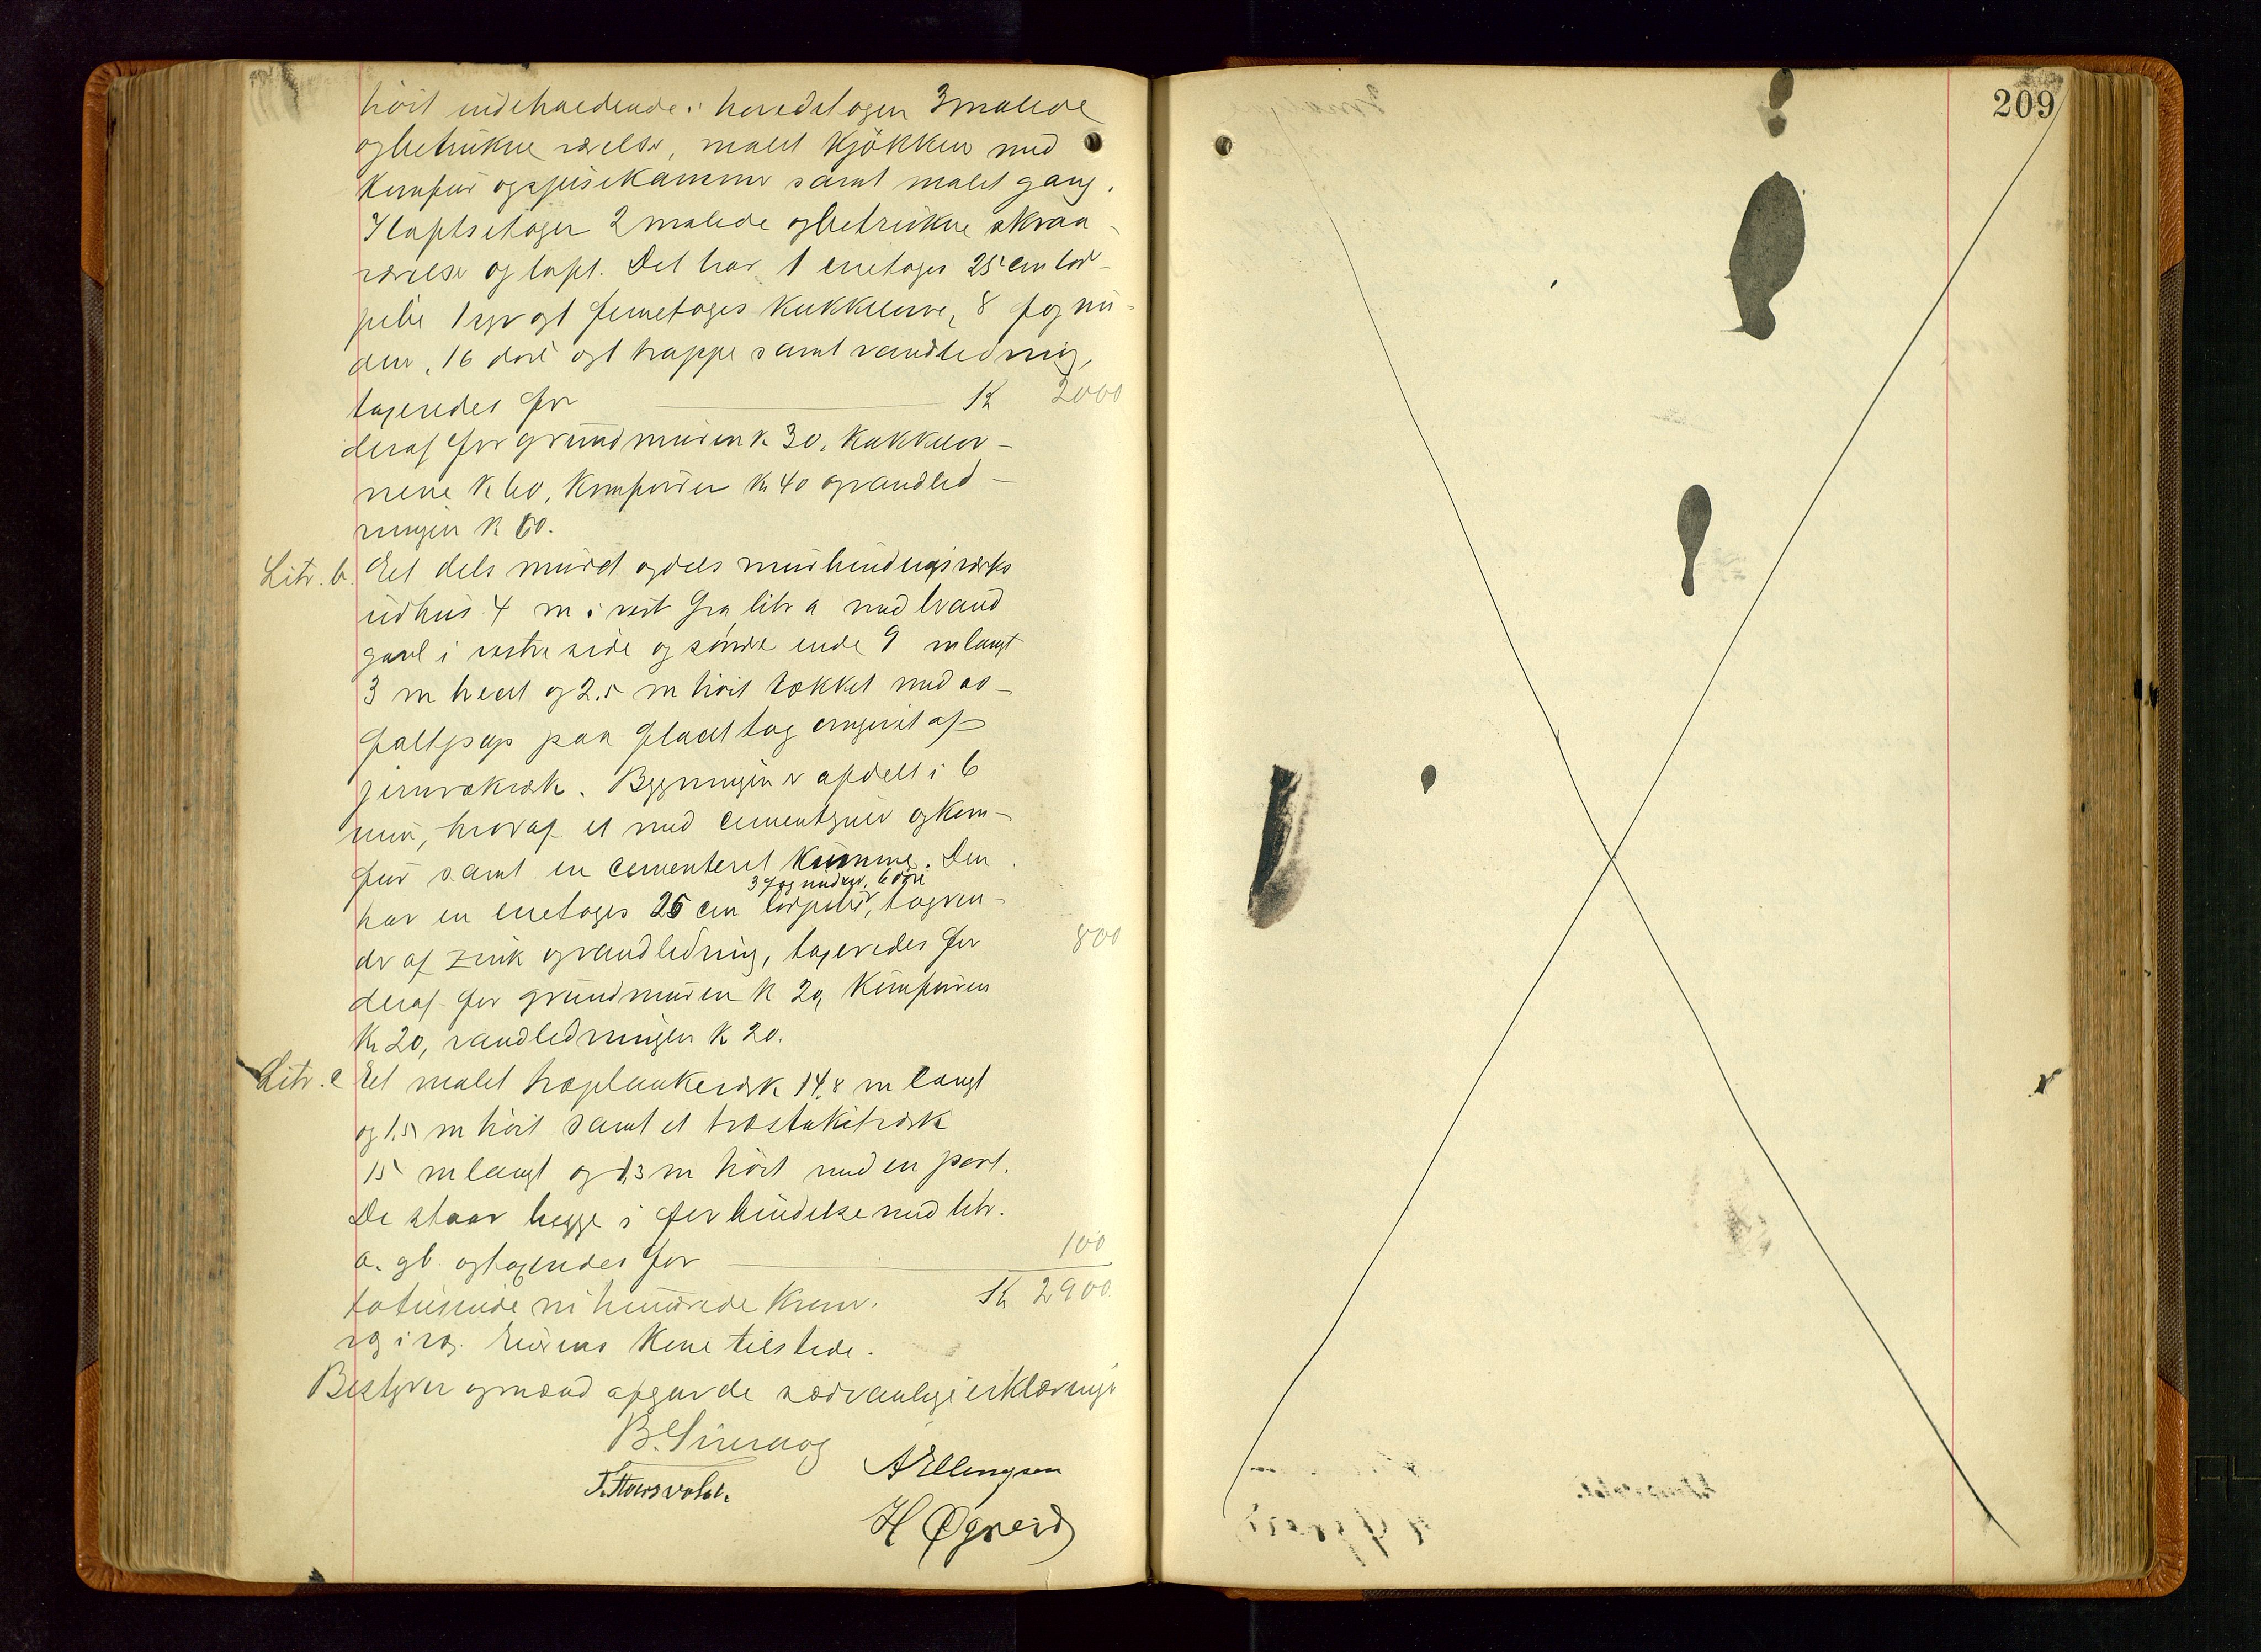 höit indeholdende: hovedetagen 3 malede
og betrukne værelser, malet kjökken med
komfur og spisekammer samt malet gang.
I loftsetagen 2 malede og betrukne skraa-
værelser og loft. Det har 1 enetages 25 cm lod-
pibe 1 rør og 1 femetages kakkelovne, 8 fag vin-
duer, 16 döre og 1 trappe samt vandledning,
taxeredes for Kr 2000
deraf for grundmuren kr 30, kakkelov-
nene kr 60, komfuren kr 40 og vandled-
ningen kr 60.
Litr. b. Et dels muret og dels murbindingsværks
udhus 4 m i vest fra litr a med brand
gavl i vestre side og söndre ende 9 m langt
3 m bredt og 2.5 m höit tækket med as-
faltpap paa fladt tag omgivet af
jernrækværk. Bygningen er afdelt i 6
rum, hvoraf et med cementgulv og kom-
fur samt en cementeret kumme. Den
3 fag vinduer, 6 döre
har en enetages 25 cm lodpibe, tagren-
der af zink og vandledning, taxeredes for 800
deraf for grundmuren kr 20, komfuren
kr 20, vandledningen kr 20.
Litr. c Et malet træplankeværk 14,8 m langt
og 1,5 m höit samt et træstakitværk
15 m langt og 1,3 m höit med en port.
De staar begge i forbindelse med litr.
a. og b. og taxeredes for 100
totusinde ni hundrede kroner. Kr 2900
Eierens kone tilstede.
Bestyrer og mænd afgav de sædvanlige erklæringer
A Ellingsen
H Øgreid
209